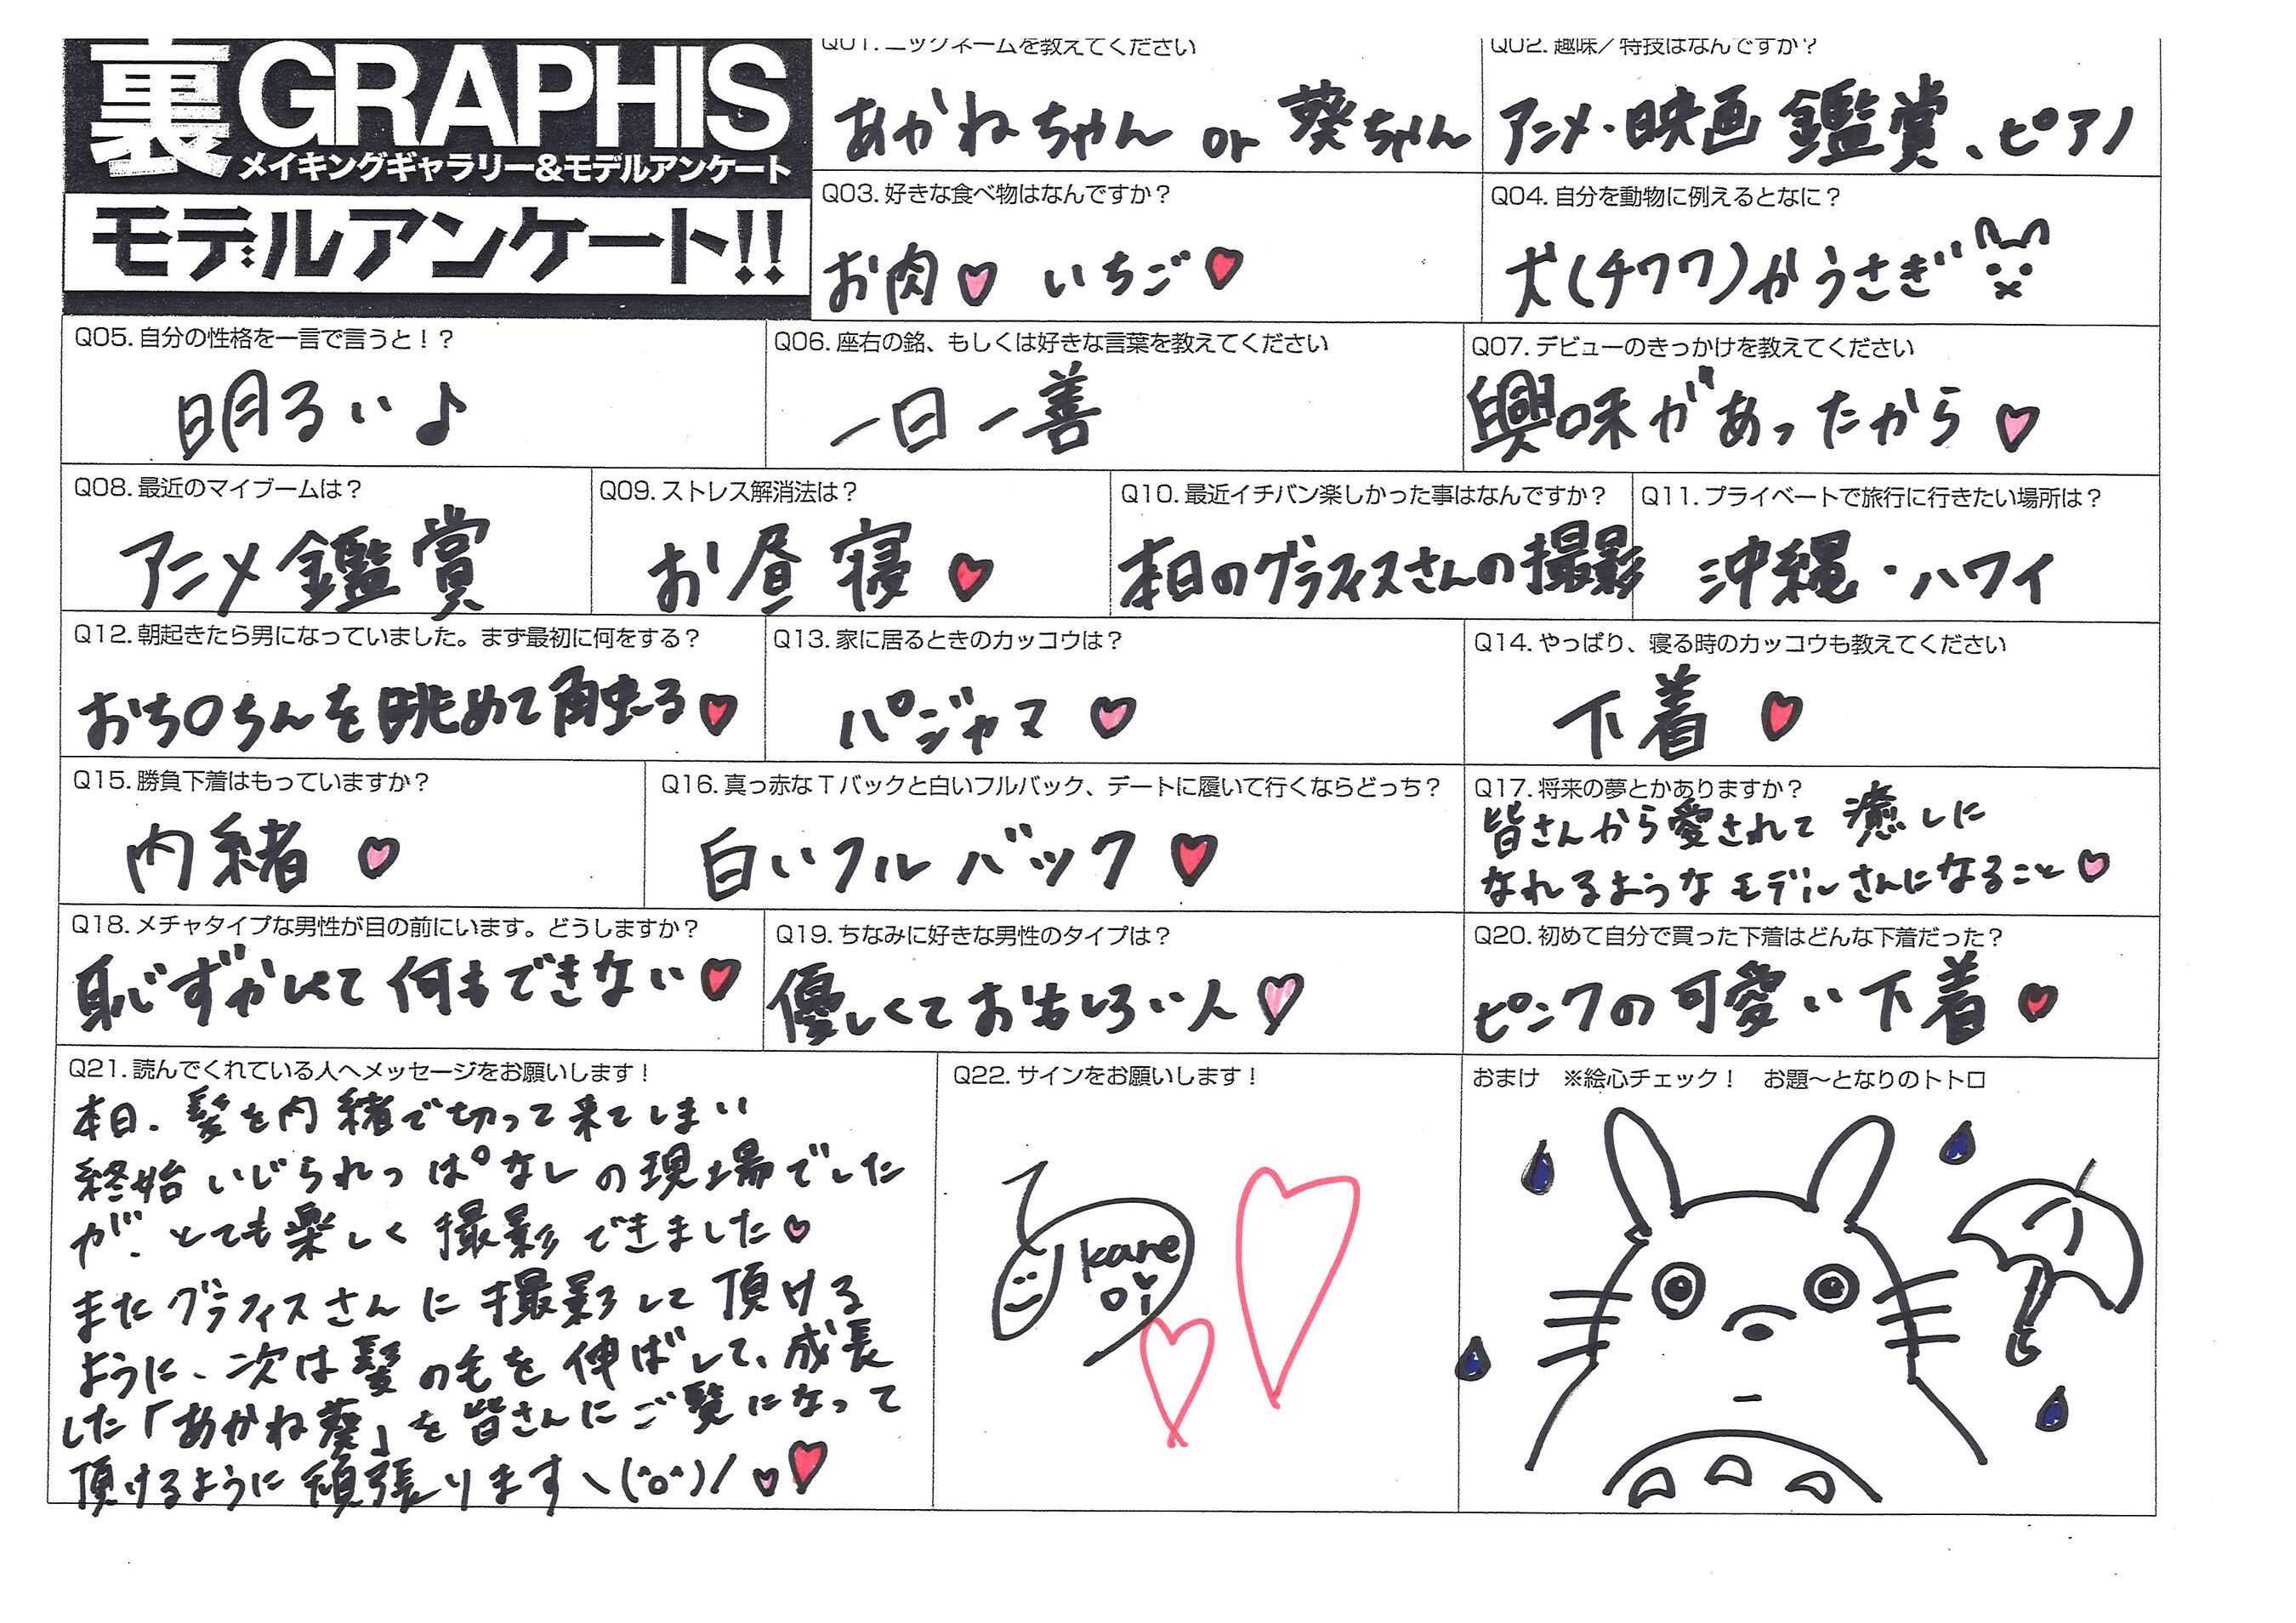 裏GRAPHIS
メイキングギャラリー&モデルアンケート
モデルアンケート!!
Q01.ニックネームを教えてください
あかねちゃん or 葵ちゃん
Q02.趣味/特技はなんですか?
アニメ・映画鑑賞、ピアノ
Q03.好きな食べ物はなんですか?
お肉♡ いちご♥
Q04.自分を動物に例えるとなに?
犬(チワワ)かうさぎ
Q05.自分の性格を一言で言うと!?
明るい♪
Q06.座右の銘、もしくは好きな言葉を教えてください
一日一善
Q07.デビューのきっかけを教えてください
興味があったから♡
Q08.最近のマイブームは?
アニメ鑑賞
Q09.ストレス解消法は?
お昼寝♥
Q10.最近イチバン楽しかった事はなんですか?
本日のグラフィスさんの撮影
Q11.プライベートで旅行に行きたい場所は?
沖縄・ハワイ
Q12.朝起きたら男になっていました。まず最初に何をする?
おち〇ちんを眺めて触る♥
Q13.家に居るときのカッコウは?
パジャマ♡
Q14.やっぱり、寝る時のカッコウも教えてください
下着♥
Q15.勝負下着はもっていますか?
内緒♡
Q16.真っ赤なTバックと白いフルバック、デートに履いて行くならどっち?
白いフルバック♥
Q17.将来の夢とかありますか?
皆さんから愛されて癒しに
なれるようなモデルさんになること♡
Q18.メチャタイプな男性が目の前にいます。どうしますか?
恥ずかしくて何もできない♥
Q19.ちなみに好きな男性のタイプは?
優しくておもしろい人♡
Q20.初めて自分で買った下着はどんな下着だった?
ピンクの可愛い下着♥
Q21.読んでくれている人へメッセージをお願いします!
本日、髪を内緒で切って来てしまい
終始いじられっぱなしの現場でした
が、とても楽しく撮影できました♡
またグラフィスさんに撮影して頂ける
ように、次は髪の毛を伸ばして、成長
した「あかね葵」を皆さんにご覧になって
頂けるように頑張ります\(^o^)/♡♥
Q22.サインをお願いします!
kane
oi
おまけ ※絵心チェック! お題〜となりのトトロ